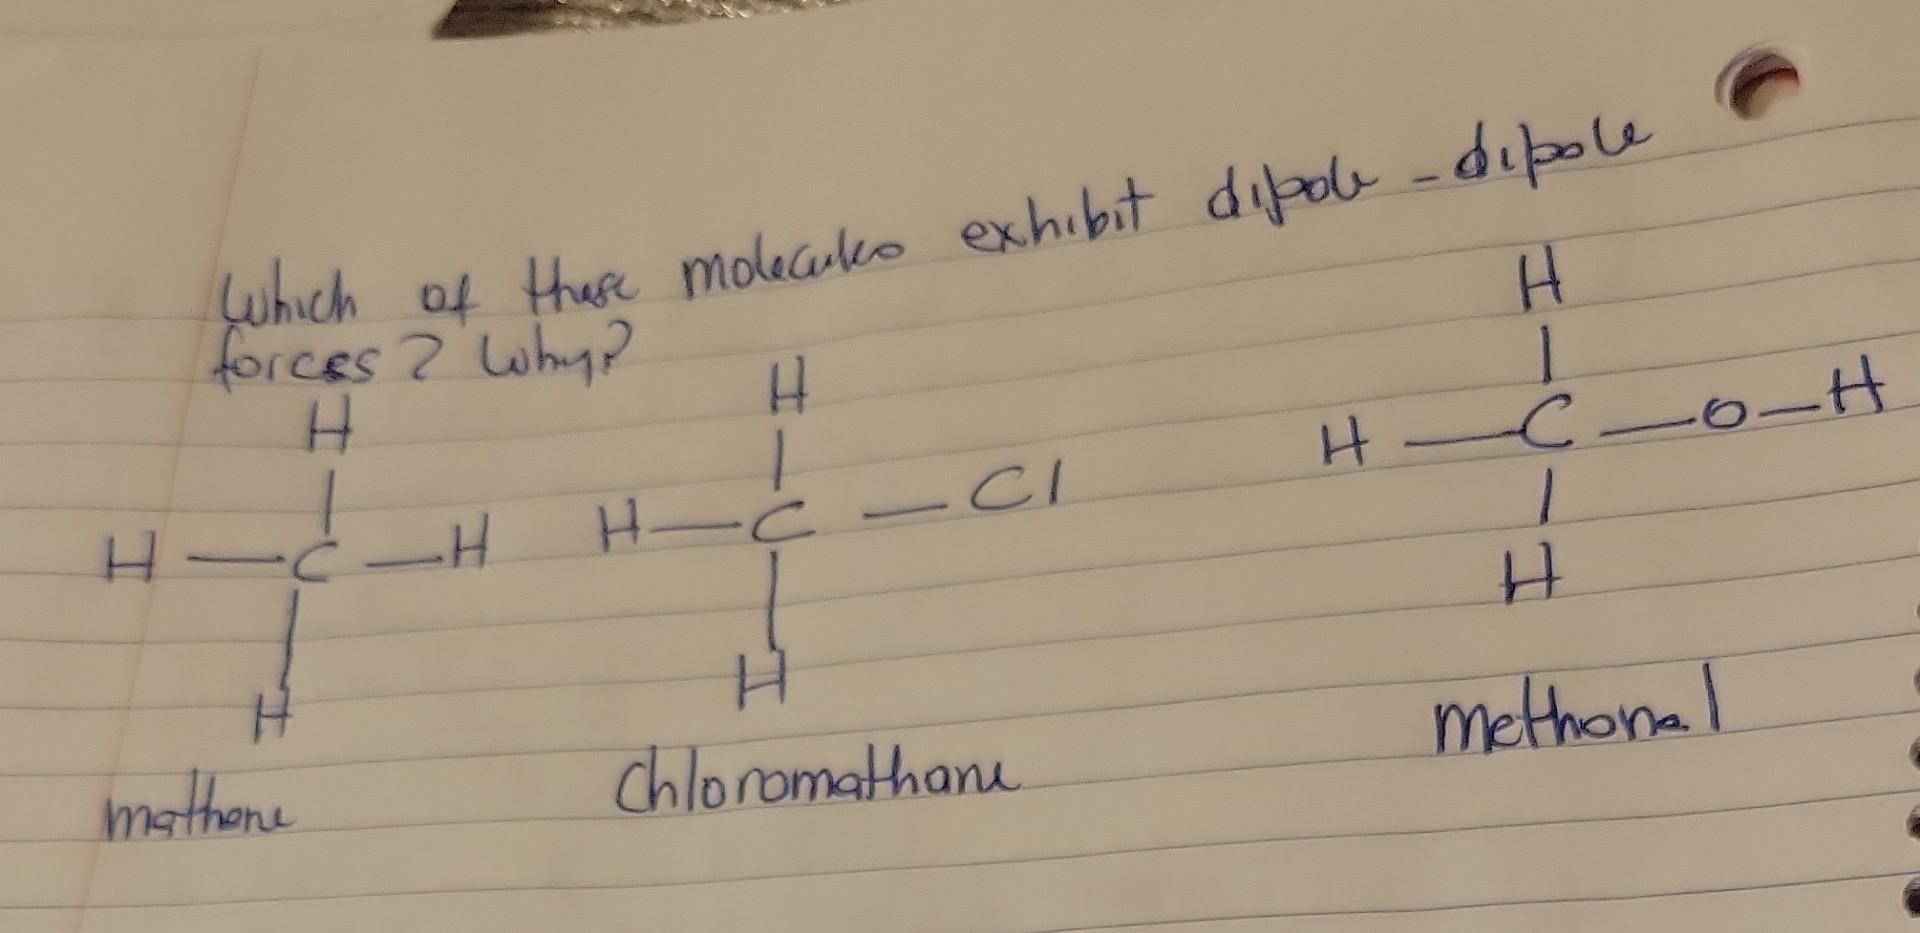 Which of these molecules exhibit dipole - dipole
forces? Why?
H
H
H
H — C — H
H — C — Cl
H — C — O — H
H
H
H
methane
Chloromethane
methanol